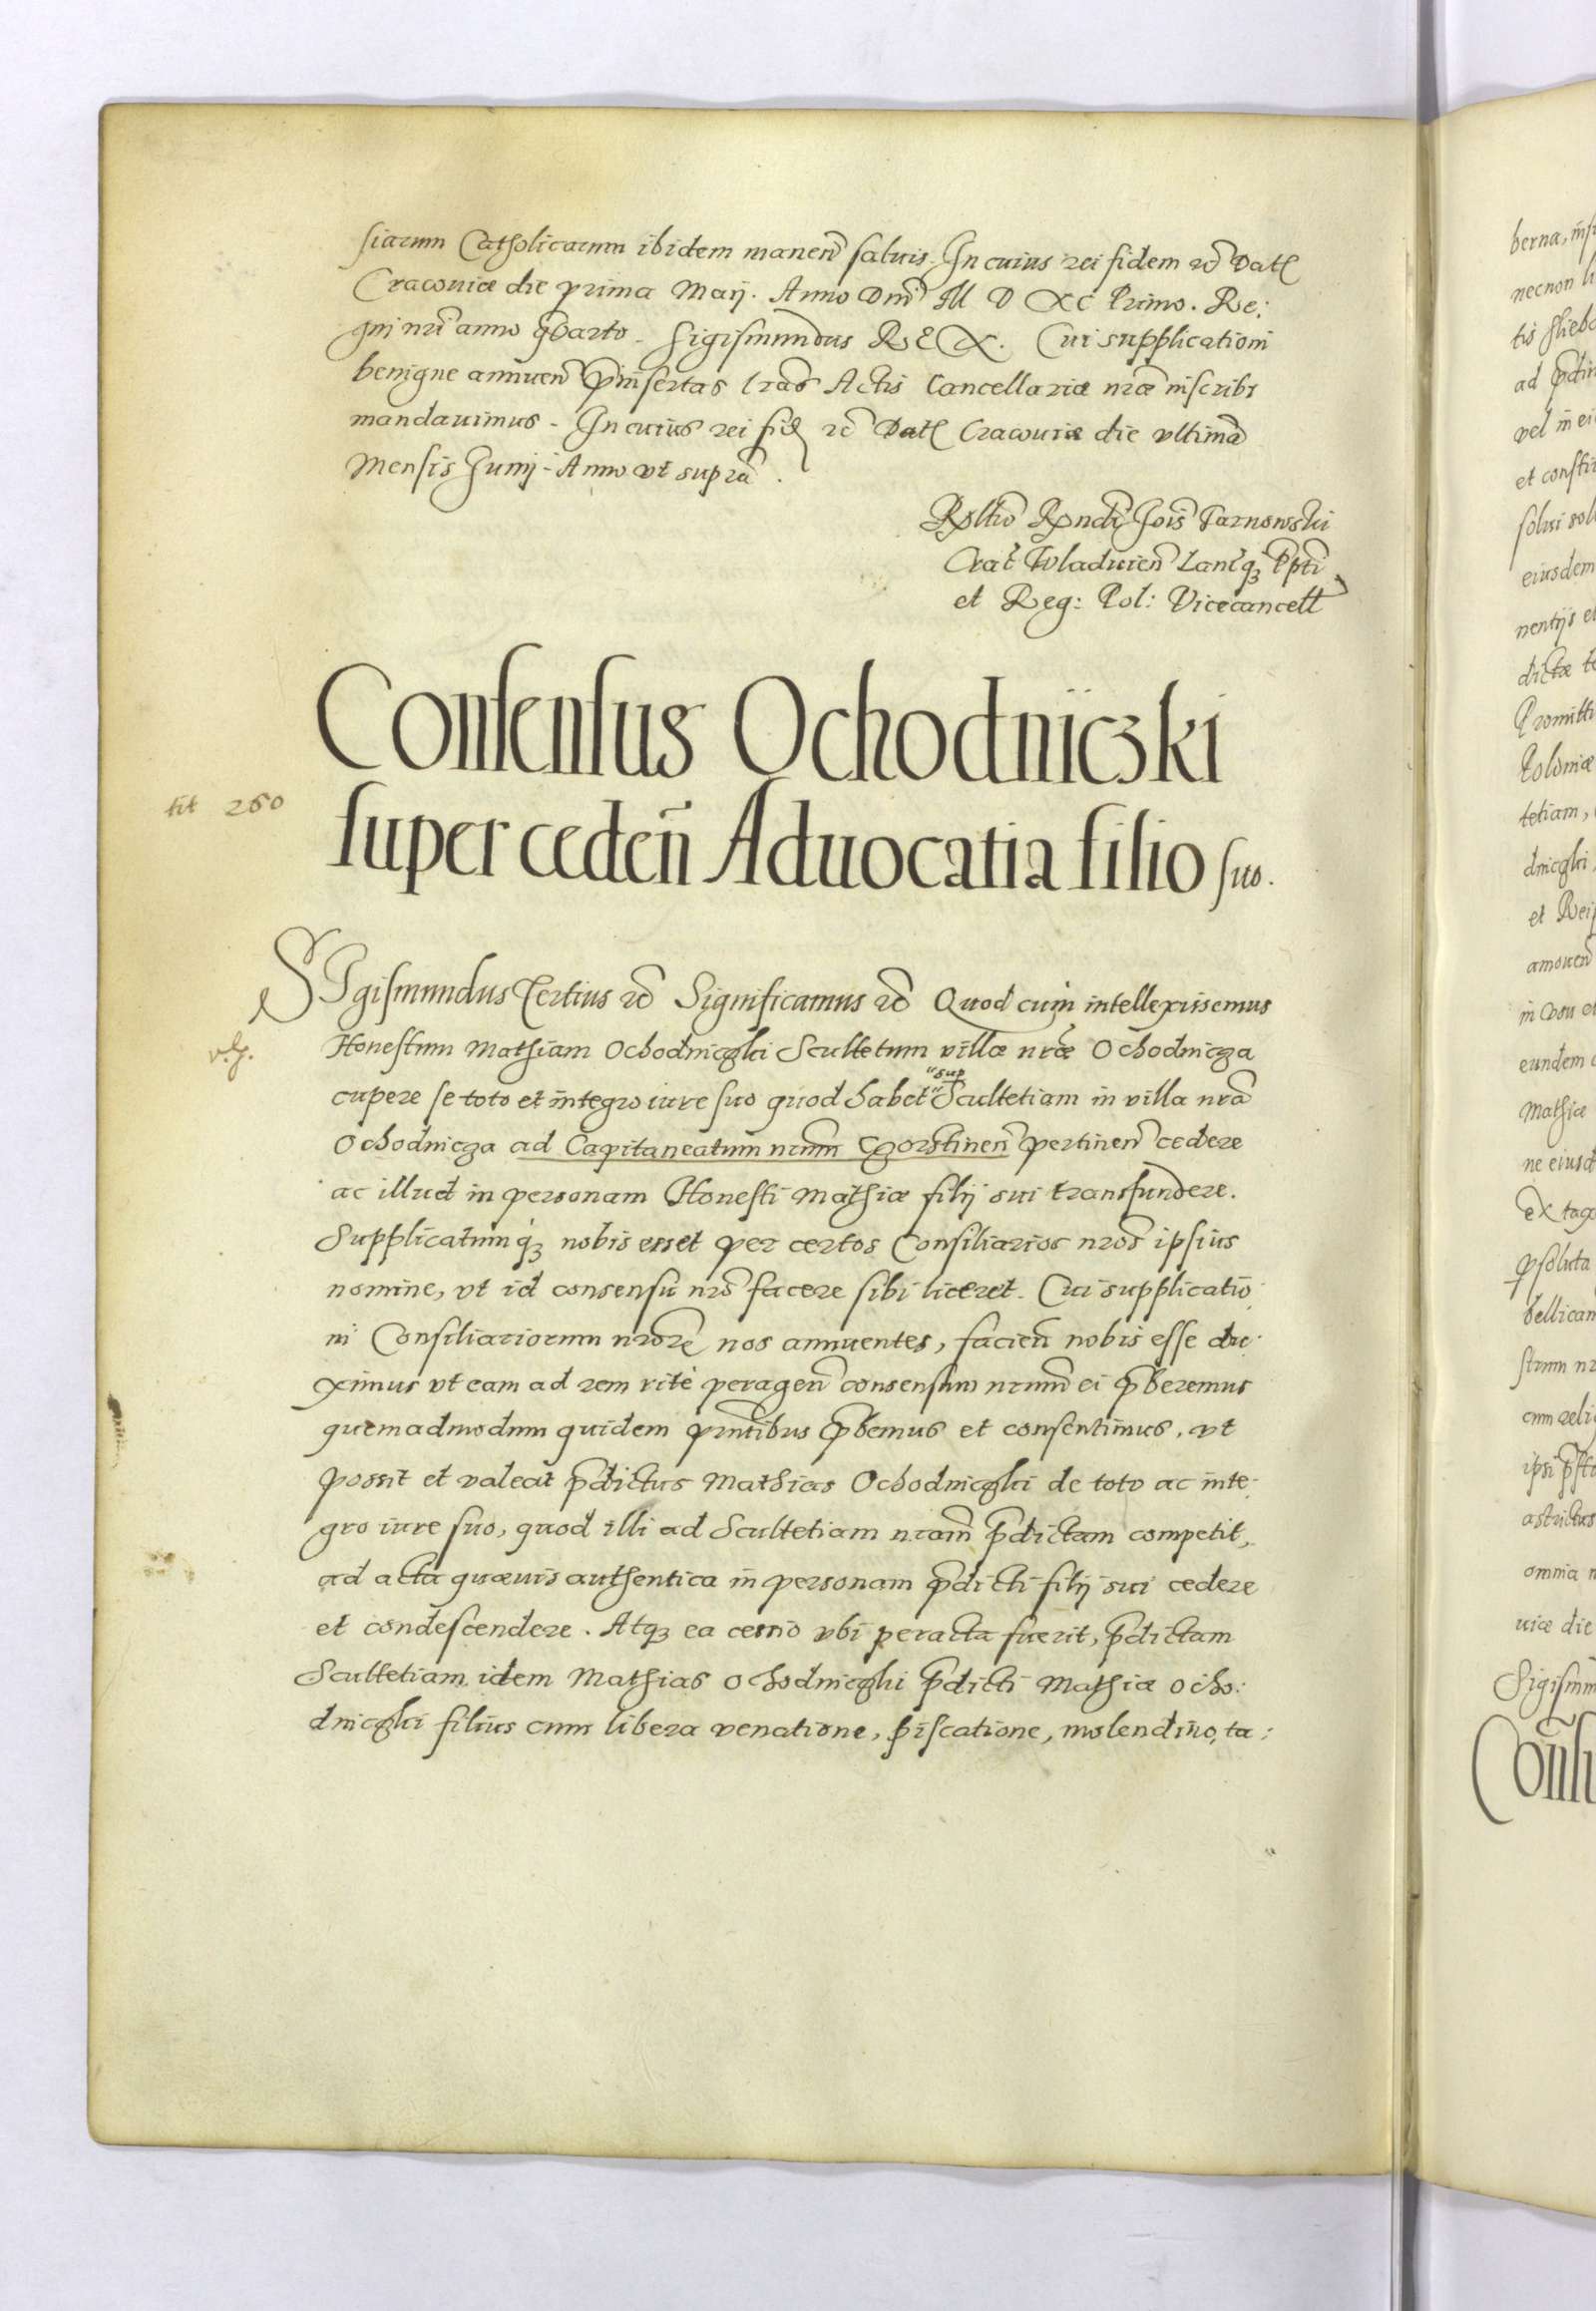 siarum Catholicarum ibidem maneñ saluis. In cuius rei fidem etc̃ Dat̃
Cracoviæ die prima Maij. Anno Dnĩ M D XC Primo. Re:
gni nrĩ anno qvarto. Sigismundus REX. Cui supplicationi
benigne annuen̄ p̄insertas lrãs Actis Cancellariæ nræ̃ inscribi
mandauimus. In cuius rei fid̃ etc̃ Dat̃ Cracouiæ die vltima
Mensis Junij. Anno vt supra.
Rel̃tio Rñdi Jois̃ Tarnowski
Crac̃ Wladuien̄ Lancq̨ Ppt̃i
et Reg: Pol: Vicecancell
Consensus Ochodniczki
super cedeñ Aduocatia filio suo.
tit 260
SIgismundus Tertius etc̃ Significamus etc̃ Quod cum intellexissemus
Honestum Mathiam Ochodniczki Scultetum villæ nræ̃ Ochodnicza
cupere se toto et integro iure suo quod habet "sup" Scultetiam in villa nrã
Ochodnicza ad Capitaneatum nrum̃ Czorstinen̄ pertinen̄ cedere
ac illud in personam Honesti Mathiæ filij sui transfundere.
Supplicatumq̨ nobis esset per certos Consiliarios nros̃ ipsius
nomine, vt id consensu nrõ facere sibi liceret. Cui supplicatio
ni Consiliariorum nror̃ nos annuentes, facien̄ nobis esse du:
ximus vt eam ad rem ritè peragen̄ consensum nrum̃ ei p̄beremus
quemadmodum quidem pñtibus p̄bemus et consentimus, vt
possit et valeat p̄dictus Mathias Ochodniczki de toto ac inte:
gro iure suo, quod illi ad Scultetiam nram̃ p̄dictam competit,
ad acta quæuis authentica in personam p̄dicti filij sui cedere
et condescendere. Atq̨ ea cessio vbi peracta fuerit, p̄dictam
Scultetiam idem Mathias Ochodniczki p̄dicti Mathiæ Ocho:
dniczki filius cum libera venatione, piscatione, molendino, ta:
berna,
necnon
tis
ad
vel in
et
eiusdem
nentijs et
dictæ
Poloniæ
tetiam,
dniczki
et Rei
amouen̄
in vsu
eundem
Mathiæ
ne eiusd
bellicam
cum
astrictus
omnia
uiæ die